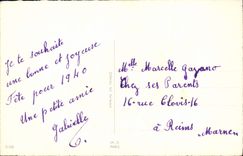 Je te souhaite
une bonne et joyeuse
Fête pour 1940
Une petite amie
Gabrielle
Mlle Marcelle Gayano
Chez ses Parents
16-rue Clovis-16
à Reims
Marne